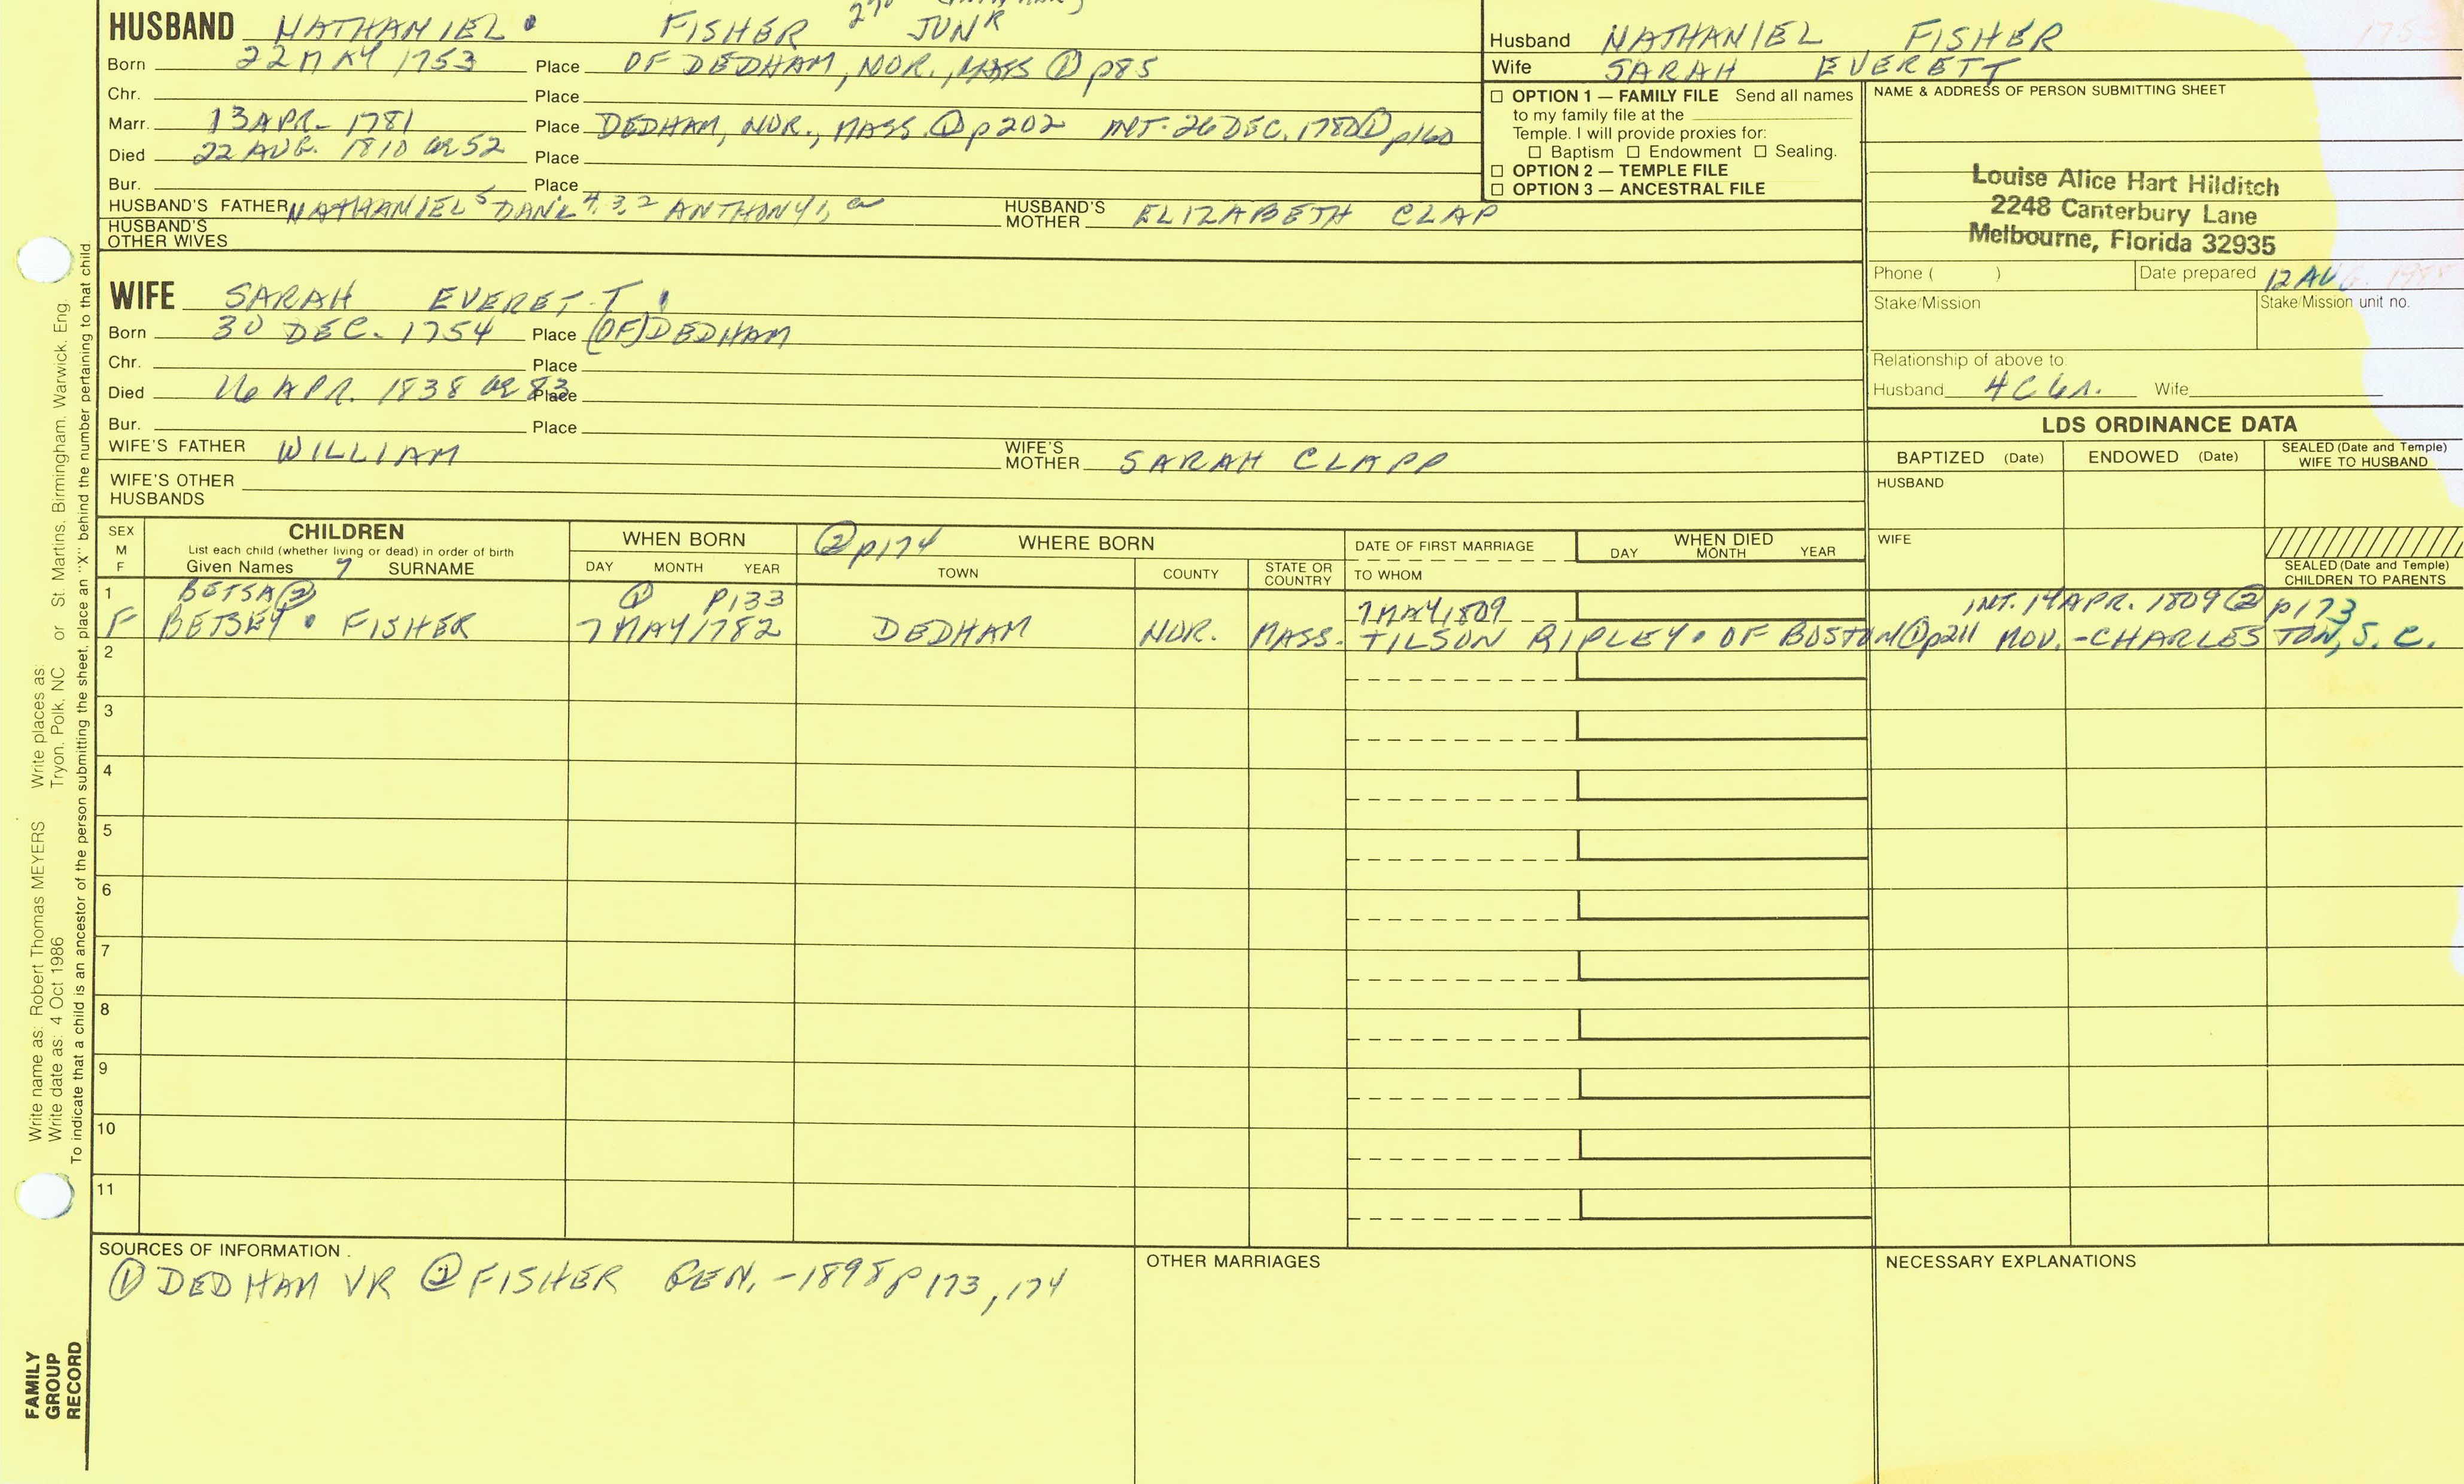 HUSBAND NATHANIEL • FISHER 2nd JUNR
Born 22 MAY 1753 Place OF DEDHAM, NOR., MASS ① p85
Chr. Place
Marr. 13 APR. 1781 Place DEDHAM, NOR., MASS. ① p202 INT. 26 DEC. 1780 ① p160
Died 22 AUG. 1810 ae 52 Place
Bur. Place
HUSBAND'S FATHER NATHANIEL 5 DANL 4, 3, 2 ANTHONY 1,
HUSBAND'S MOTHER ELIZABETH CLAP
HUSBAND'S OTHER WIVES
WIFE SARAH EVERETT
Born 30 DEC. 1754 Place (OF) DEDHAM
Chr. Place
Died 16 APR. 1838 ae 83 Place
Bur. Place
WIFE'S FATHER WILLIAM
WIFE'S MOTHER SARAH CLAPP
WIFE'S OTHER HUSBANDS
Husband NATHANIEL FISHER
Wife SARAH EVERETT
☐ OPTION 1 — FAMILY FILE Send all names
to my family file at the
Temple. I will provide proxies for:
☐ Baptism ☐ Endowment ☐ Sealing.
☐ OPTION 2 — TEMPLE FILE
☐ OPTION 3 — ANCESTRAL FILE
NAME & ADDRESS OF PERSON SUBMITTING SHEET
Louise Alice Hart Hilditch
2248 Canterbury Lane
Melbourne, Florida 32935
Phone ( ) Date prepared 12 AUG.
Stake/Mission Stake/Mission unit no.
Relationship of above to
Husband 4C6R. Wife
LDS ORDINANCE DATA
BAPTIZED (Date) ENDOWED (Date) SEALED (Date and Temple) WIFE TO HUSBAND
HUSBAND
WIFE
SEALED (Date and Temple) CHILDREN TO PARENTS
SEX M F
CHILDREN
List each child (whether living or dead) in order of birth
Given Names 7 SURNAME
WHEN BORN
DAY MONTH YEAR
② p174 WHERE BORN
TOWN COUNTY STATE OR COUNTRY
DATE OF FIRST MARRIAGE
TO WHOM
WHEN DIED
DAY MONTH YEAR
1 BETSA ② ① P133 7 MAY 1809 INT. 14 APR. 1809 ② p173
F BETSEY • FISHER 7 MAY 1782 DEDHAM NOR. MASS. TILSON RIPLEY • OF BOSTON ① p211 MOV. - CHARLESTON, S. C.
2
3
4
5
6
7
8
9
10
11
SOURCES OF INFORMATION
① DEDHAM VR ② FISHER GEN. - 1898 p 173, 174
OTHER MARRIAGES
NECESSARY EXPLANATIONS
Write name as: Robert Thomas MEYERS Write places as:
Write date as: 4 Oct 1986 Tryon, Polk, NC or St. Martins, Birmingham, Warwick, Eng
To indicate that a child is an ancestor of the person submitting the sheet, place an "X" behind the number pertaining to that child.
FAMILY
GROUP
RECORD